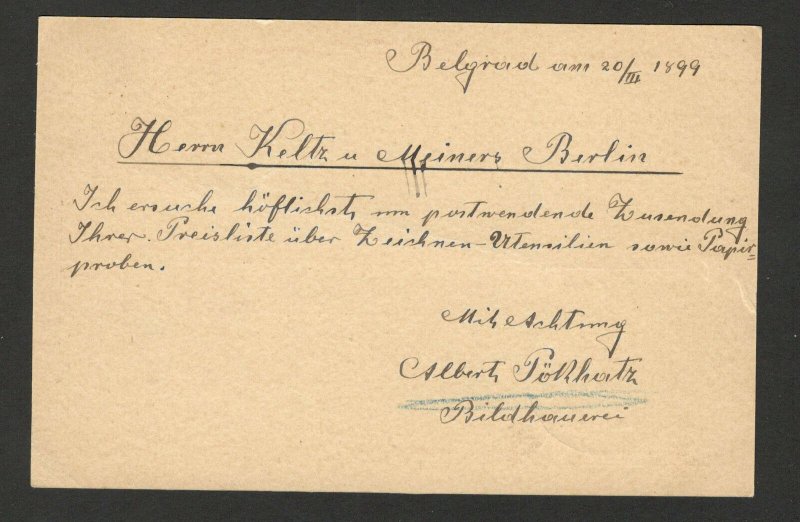 Belgrad am 20/III 1899
Herrn Keltz u Meiners Berlin
Ich ersuche höflichst, um postwendende Zusendung
Ihrer Preisliste über Zeichnen-Utensilien sowie Papir-
proben.
Mit Achtung
Albert
Bildhauerei